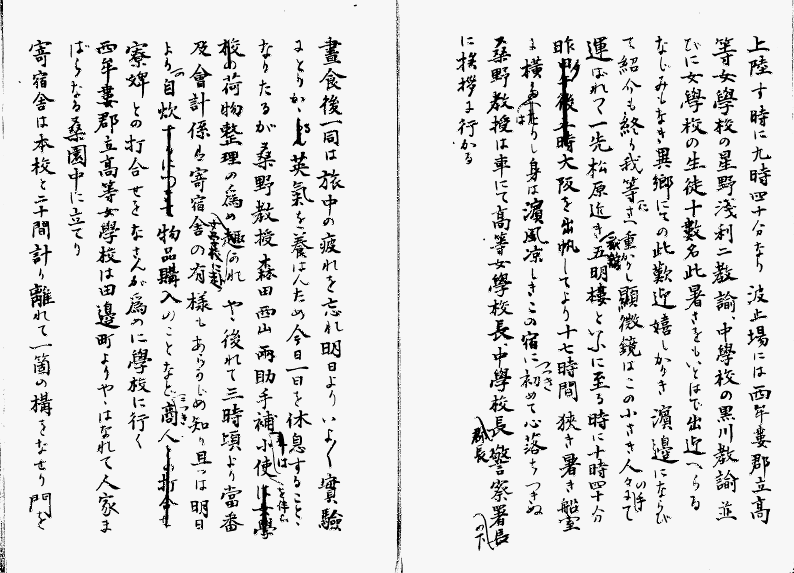 上陸す時に九時四十分なり波止場には西牟婁郡立高
等女學校の星野淺利二教諭中學校の黒川教諭並
びに女學校の生徒十數名此暑さをもいとはで出迎へらる
なじみもなき異郷にての此歓迎嬉しかりき濱邊にならび
て紹介も終り我等に重かりし顯微鏡はこの小さき人々の手にて
運ばれて一先松原近き五明樓といふに至る時に十時四十分
昨 大阪を出帆してより十七時間狭き暑き船室
に横 りし身は濱風凉しきこの宿につき初めて心落ちつきぬ
桑野教授は車にて高等女學校長中學校長警察署長郡長の下
に挨拶に行かる
晝食後一同は旅中の疲れを忘れ明日よりいよ〱實驗
にとりかゝる英氣を養はんため今日一日を休息することゝ
なりたるが桑野教授森田西山兩助手補小使 學
校の荷物整理の爲め やゝ後れて三時頃より當番
及會計係は寄宿舎の有様もあらかじめ知り且つは明日
より自炊 物品購入のことなど商人
寮婢との打合せをなさんが爲めに學校に行く
西牟婁郡立高等女學校は田邊町よりやゝはなれて人家ま
ばらなる桑園中に立てり
寄宿舎は本校と二十間計り離れて一箇の構をなせり門を